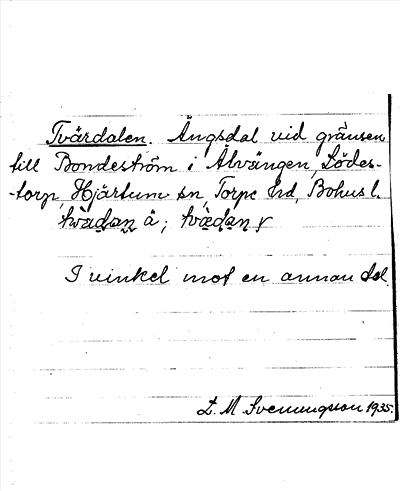 Tvärdalen. Ängsdal vid gränsen
till Bondeström i Älvängen, Lödes-
-torp, Hjärtum sn, Torpe hd, Bohus l.
ä;
I vinkel mot en annan dal.
L. M. Svenungsson 1935.